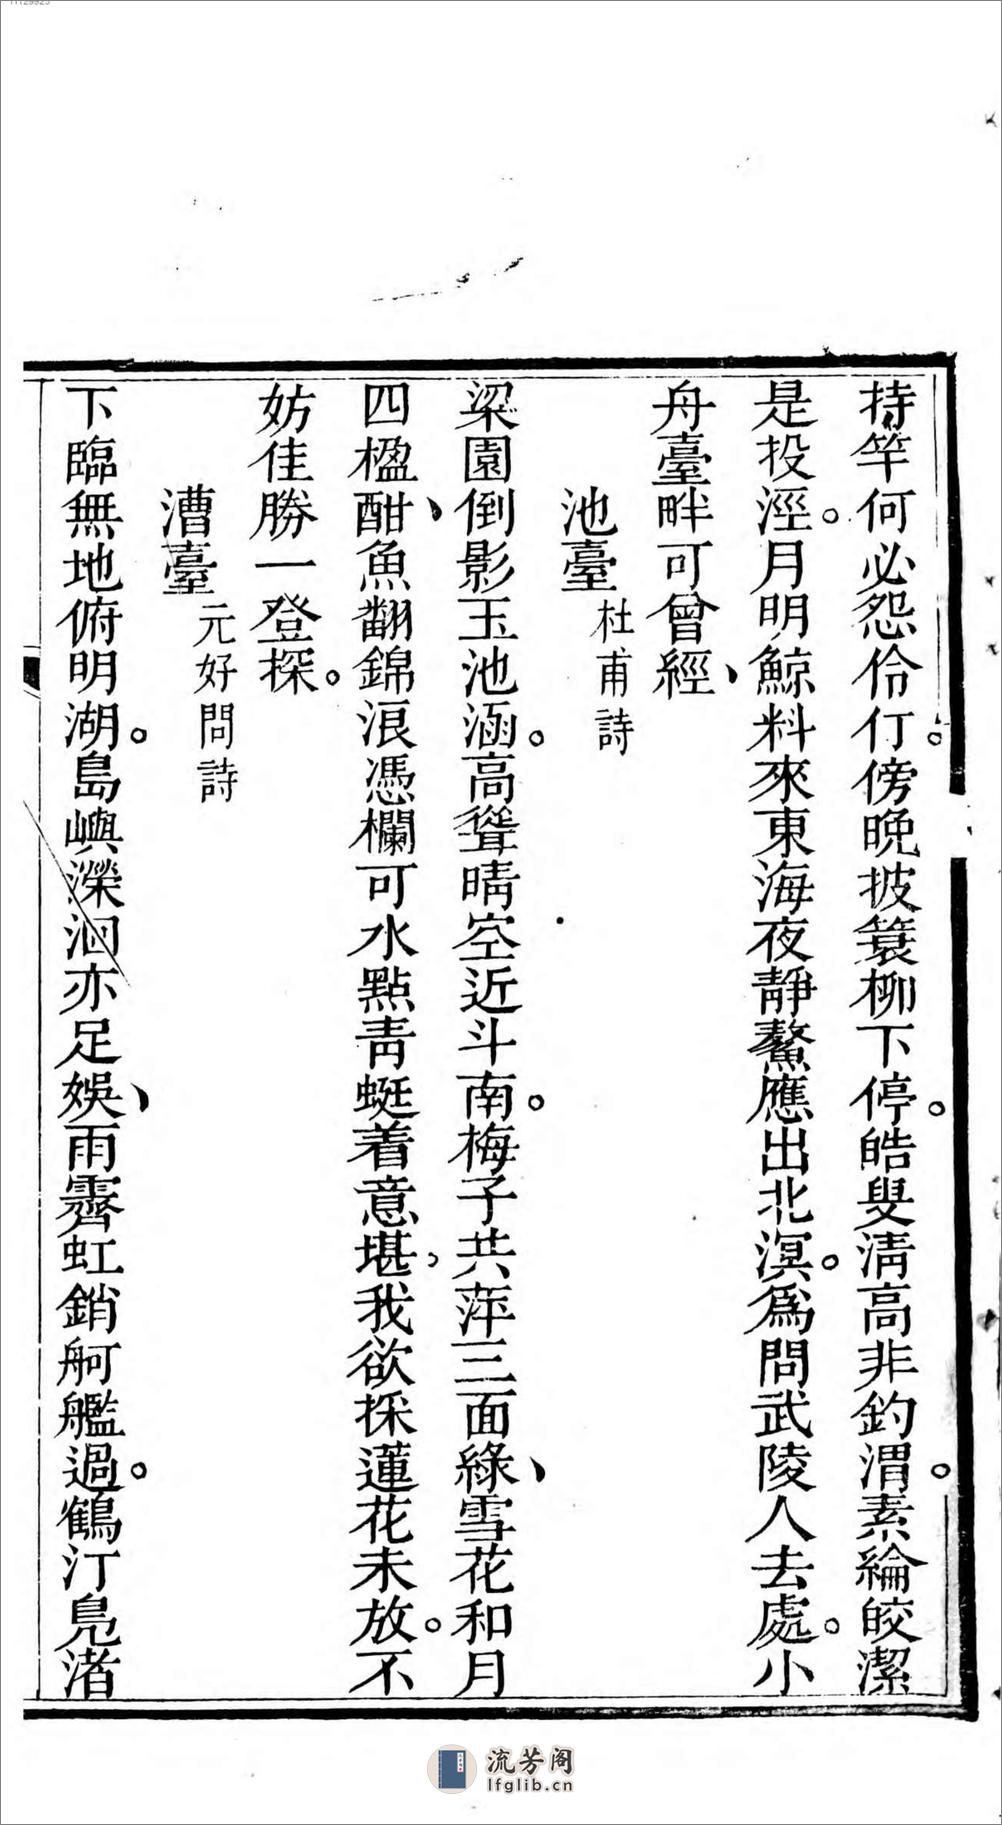 持竿何必怨伶仃。傍晚披簑柳下停。皓叟清高非釣渭。素綸皎潔
是投涇。月明鯨料來東海夜靜鰲應出北溟。爲問武陵人去處。小
舟臺畔可曾經、
池臺 杜甫詩
梁園倒影玉池涵。高聳晴空近斗南。梅子共萍三面綠、雪花和月
四楹酣、魚翻錦浪憑欄可水點青蜓着意堪、我欲採蓮花未放。不
妨佳勝一登探。
漕臺 元好問詩
下臨無地俯明湖。島嶼濴洄亦足娛、雨霽虹銷舸艦過。鶴汀鳧渚
流芳阁
lfglib.cn